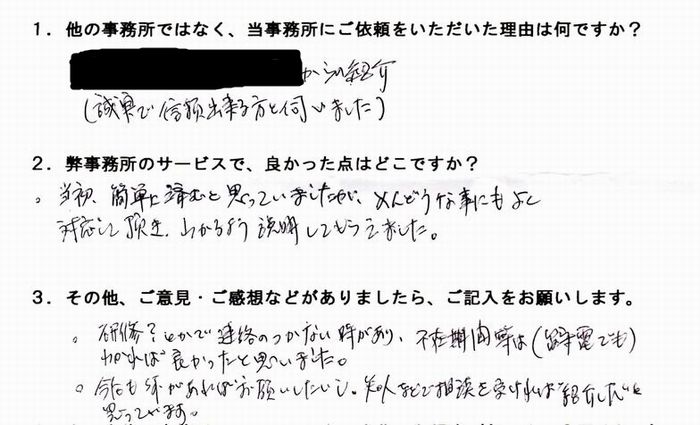 1．他の事務所ではなく、当事務所にご依頼をいただいた理由は何ですか？
からの紹介
（誠実で信頼出来る方と伺いました）
2．弊事務所のサービスで、良かった点はどこですか？
。当初、簡単に済むと思っていましたが、めんどうな事にもよく
対応して頂き、わかるよう説明してもらえました。
3．その他、ご意見・ご感想などがありましたら、ご記入をお願いします。
。研修？とかで連絡のつかない時があり、不在期間等は（留守電でも）
わかれば良かったと思いました。
。今後も何かあればお願いしたいし、知人などで相談を受ければ紹介したいと
思っています。